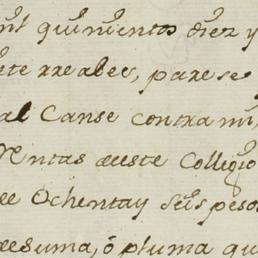 quinientos diez y
rreales, parese
al Canse contra mi,
Rentas deeste Collegio
de Ochentay seis pesos
desuma, ó pluma qu